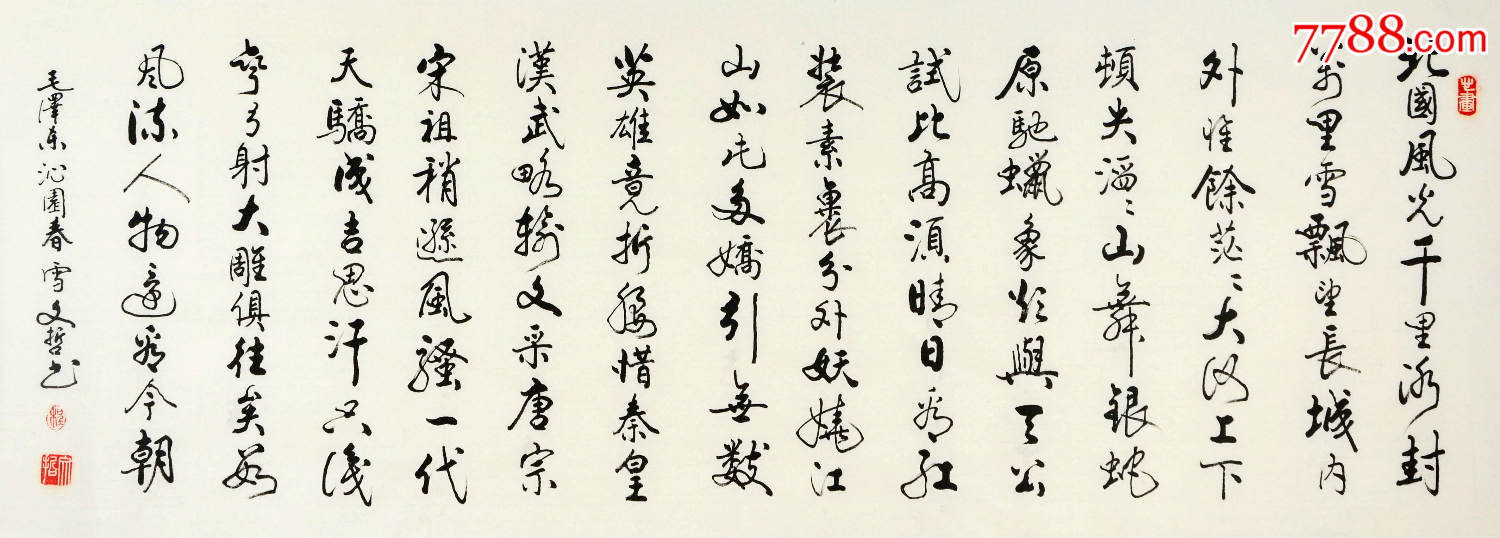 7788.com
北國風光千里冰封
萬里雪飄望長城内
外惟餘茫〻大河上下
頓失滔〻山舞銀蛇
原馳蠟象欲與天公
試比高須晴日看紅
裝素裹分外妖嬈江
山如此多嬌引無數
英雄竟折腰惜秦皇
漢武略輸文采唐宗
宋祖稍遜風騷一代
天驕成吉思汗只識
彎弓射大雕俱往矣數
風流人物還看今朝
毛澤東沁園春雪文哲书